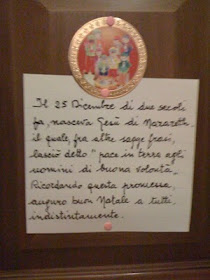 Il 25 Dicembre di due secoli
fa, nasceva Gesù di Nazareth
il quale, fra altre sagge frasi,
lasciò detto "pace in terra agli
uomini di buona volontà".
Ricordando questa promessa,
auguro buon Natale a tutti,
indistintamente.